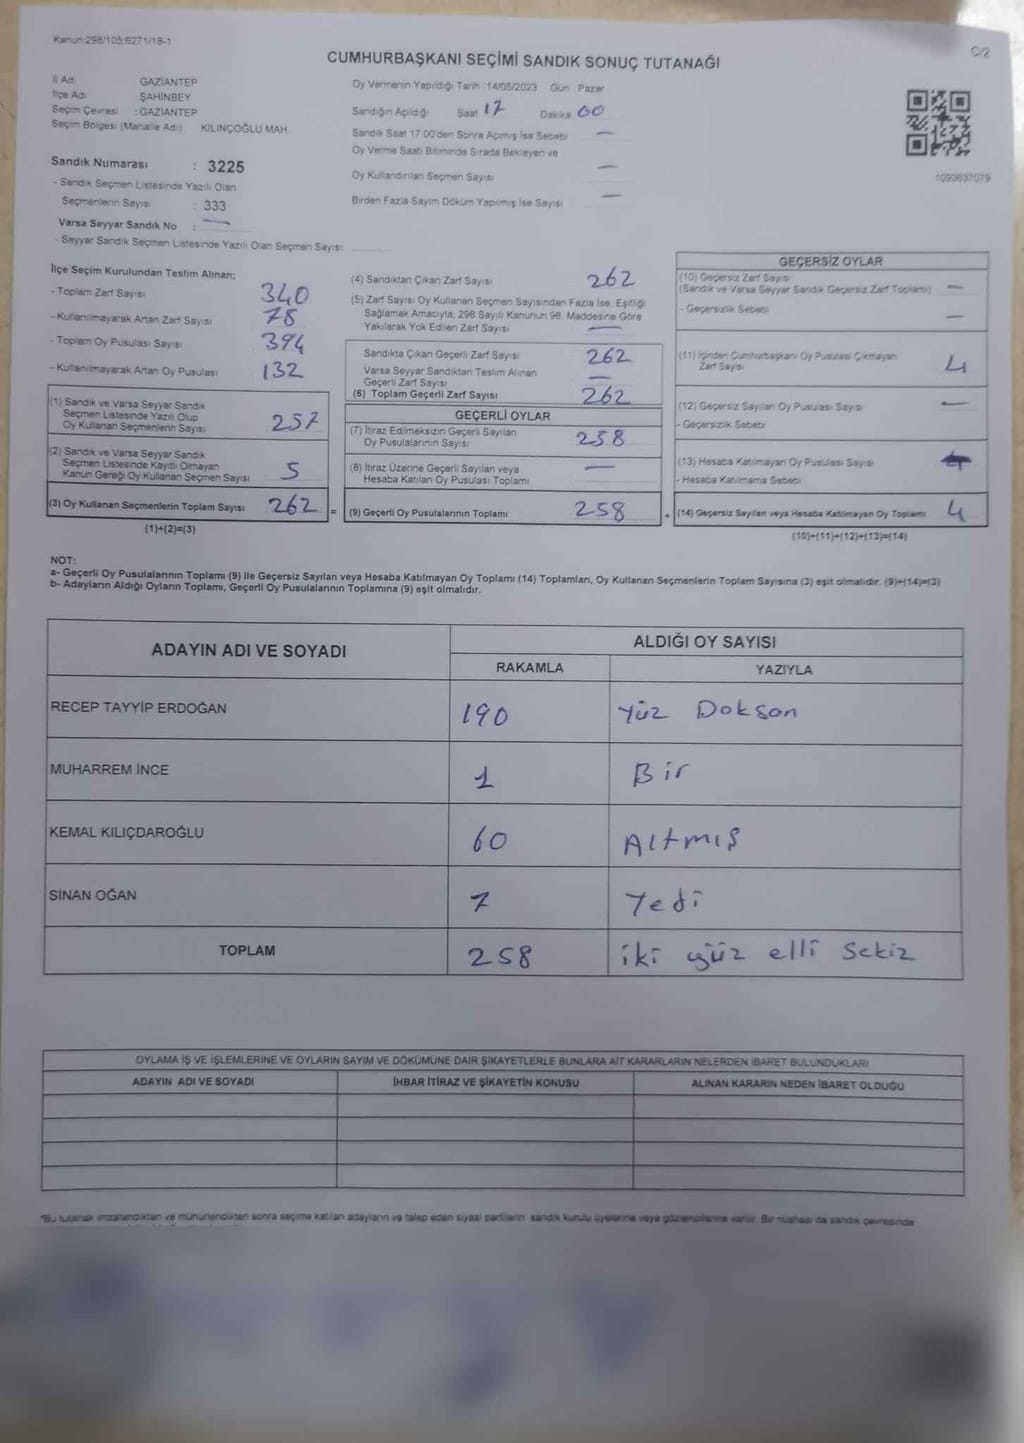 Kanun:298/105;6271/18-1
C/2
CUMHURBAŞKANI SEÇİMİ SANDIK SONUÇ TUTANAĞI
İl Adı GAZİANTEP
İlçe Adı ŞAHİNBEY
Seçim Çevresi : GAZİANTEP
Seçim Bölgesi (Mahalle Adı) KILINÇOĞLU MAH.
Sandık Numarası : 3225
- Sandık Seçmen Listesinde Yazılı Olan
Seçmenlerin Sayısı : 333
Varsa Seyyar Sandık No : —
- Seyyar Sandık Seçmen Listesinde Yazılı Olan Seçmen Sayısı:
Oy Vermenin Yapıldığı Tarih 14/05/2023 Gün : Pazar
Sandığın Açıldığı Saat 17 Dakika 00
Sandık Saat 17.00'den Sonra Açımış İse Sebebi —
Oy Verme Saati Bitiminde Sırada Bekleyen ve
Oy Kullandırılan Seçmen Sayısı —
Birden Fazla Sayım Döküm Yapılmış İse Sayısı —
1099637079
İlçe Seçim Kurulundan Teslim Alınan;
- Toplam Zarf Sayısı 340
- Kullanılmayarak Artan Zarf Sayısı 78
- Toplam Oy Pusulası Sayısı 394
- Kullanılmayarak Artan Oy Pusulası 132
(1) Sandık ve Varsa Seyyar Sandık
Seçmen Listesinde Yazılı Olup
Oy Kullanan Seçmenlerin Sayısı 257
(2) Sandık ve Varsa Seyyar Sandık
Seçmen Listesinde Kayıtlı Olmayan
Kanun Gereği Oy Kullanan Seçmen Sayısı 5
(3) Oy Kullanan Seçmenlerin Toplam Sayısı 262
(1)+(2)=(3)
=
(4) Sandıktan Çıkan Zarf Sayısı 262
(5) Zarf Sayısı Oy Kullanan Seçmen Sayısından Fazla İse, Eşitliği
Sağlamak Amacıyla, 298 Sayılı Kanunun 98. Maddesine Göre
Yakılarak Yok Edilen Zarf Sayısı —
Sandıkta Çıkan Geçerli Zarf Sayısı 262
Varsa Seyyar Sandıktan Teslim Alınan
Geçerli Zarf Sayısı —
(6) Toplam Geçerli Zarf Sayısı 262
GEÇERLİ OYLAR
(7) İtiraz Edilmeksizin Geçerli Sayılan
Oy Pusulalarının Sayısı 258
(8) İtiraz Üzerine Geçerli Sayılan veya
Hesaba Katılan Oy Pusulası Toplamı —
(9) Geçerli Oy Pusulalarının Toplamı 258
+
GEÇERSİZ OYLAR
(10) Geçersiz Zarf Sayısı
(Sandık ve Varsa Seyyar Sandık Geçersiz Zarf Toplamı) —
- Geçersizlik Sebebi —
(11) İçinden Cumhurbaşkanı Oy Pusulası Çıkmayan
Zarf Sayısı 4
(12) Geçersiz Sayılan Oy Pusulası Sayısı —
- Geçersizlik Sebebi
(13) Hesaba Katılmayan Oy Pusulası Sayısı
- Hesaba Katılmama Sebebi
(14) Geçersiz Sayılan veya Hesaba Katılmayan Oy Toplamı 4
(10)+(11)+(12)+(13)=(14)
NOT:
a- Geçerli Oy Pusulalarının Toplamı (9) ile Geçersiz Sayılan veya Hesaba Katılmayan Oy Toplamı (14) Toplamları, Oy Kullanan Seçmenlerin Toplam Sayısına (3) eşit olmalıdır. (9)+(14)=(3)
b- Adayların Aldığı Oyların Toplamı, Geçerli Oy Pusulalarının Toplamına (9) eşit olmalıdır.
ADAYIN ADI VE SOYADI
ALDIĞI OY SAYISI
RAKAMLA YAZIYLA
RECEP TAYYİP ERDOĞAN 190 Yüz Doksan
MUHARREM İNCE 1 Bir
KEMAL KILIÇDAROĞLU 60 Altmış
SİNAN OĞAN 7 Yedi
TOPLAM 258 iki yüz elli sekiz
OYLAMA İŞ VE İŞLEMLERİNE VE OYLARIN SAYIM VE DÖKÜMÜNE DAİR ŞİKAYETLERLE BUNLARA AİT KARARLARIN NELERDEN İBARET BULUNDUKLARI
ADAYIN ADI VE SOYADI İHBAR İTİRAZ VE ŞİKAYETİN KONUSU ALINAN KARARIN NEDEN İBARET OLDUĞU
*Bu tutanak imzalandıktan ve mühürlendikten sonra seçime katılan adayların ve talep eden siyasi partilerin sandık kurulu üyelerine veya gözlemcilerine verilir. Bir nüshası da sandık çevresinde